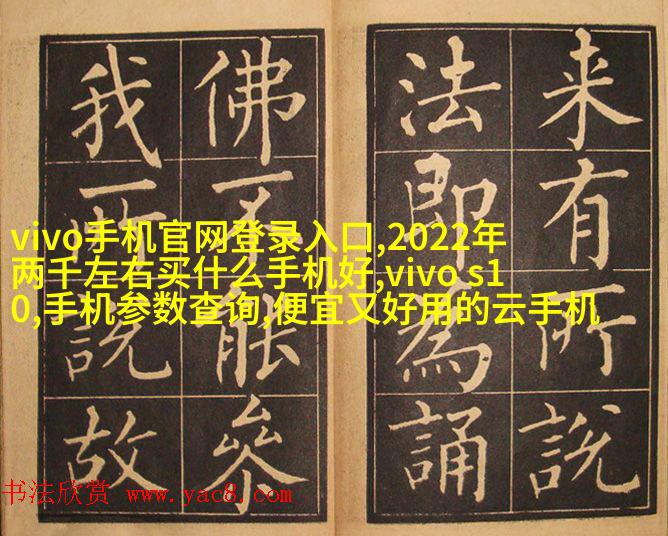 来有所說
法即為誦
佛不能叅
我所說故
vivo手机官网登录入口,2022年
两千左右买什么手机好,vivo s1
0,手机参数查询,便宜又好用的云手机
书法欣赏 www.yac8.com